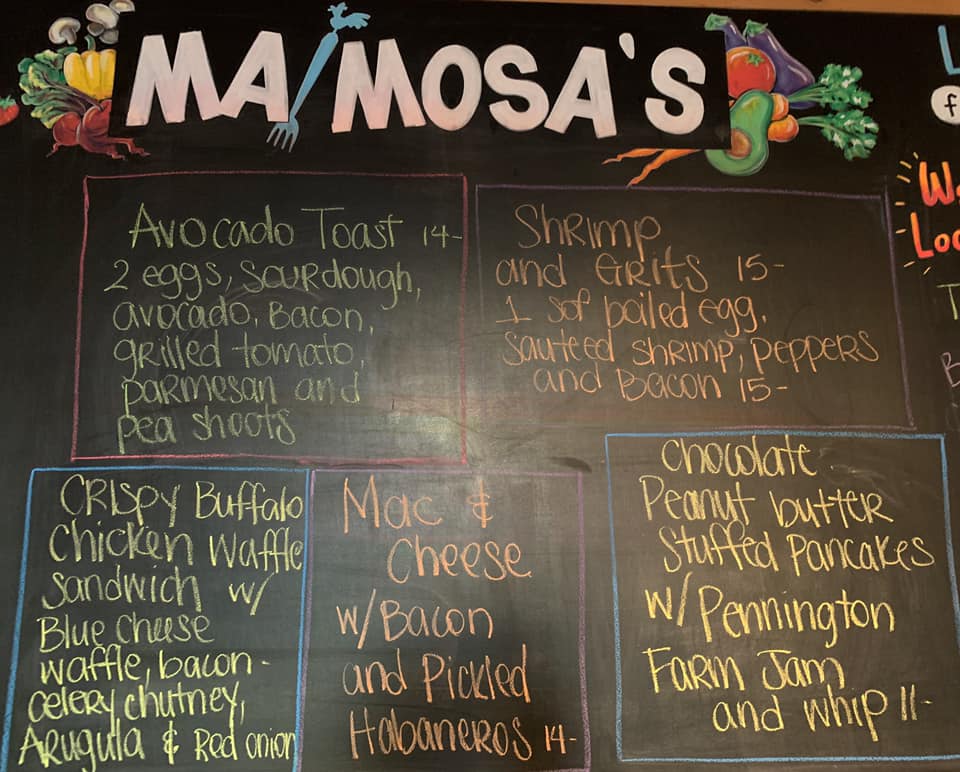 MA/MOSA'S
Avocado Toast 14-
2 eggs, sourdough,
avocado, Bacon,
grilled tomato,
parmesan and
pea shoots
Shrimp
and Grits 15-
1 sof boiled egg,
sauteed shrimp, peppers
and Bacon 15-
Crispy Buffalo
Chicken Waffle
Sandwich w/
Blue Cheese
waffle, bacon-
celery chutney,
Arugula & Red onion
Mac &
Cheese
w/Bacon
and Pickled
Habaneros 14-
Chocolate
Peanut butter
Stuffed Pancakes
w/Pennington
Farm Jam
and whip 11-
f